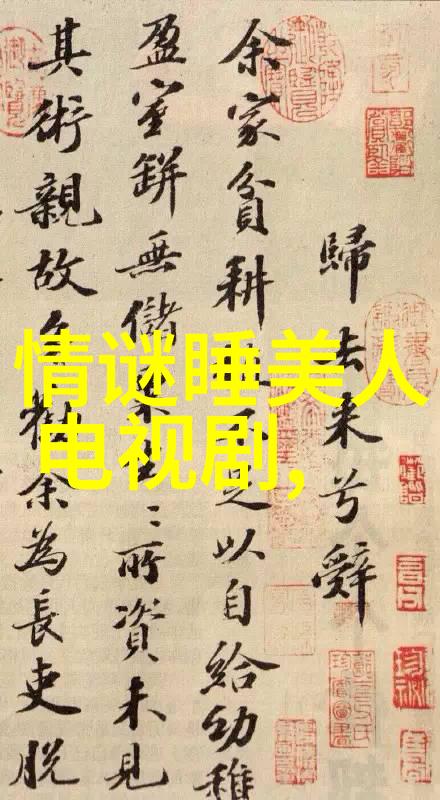 歸去来兮辭
余家貧耕不足以自給幼稚
盈室缾無儲粟生〻所資未見
其術親故多勸余為長吏脱
情谜睡美人
电视剧,